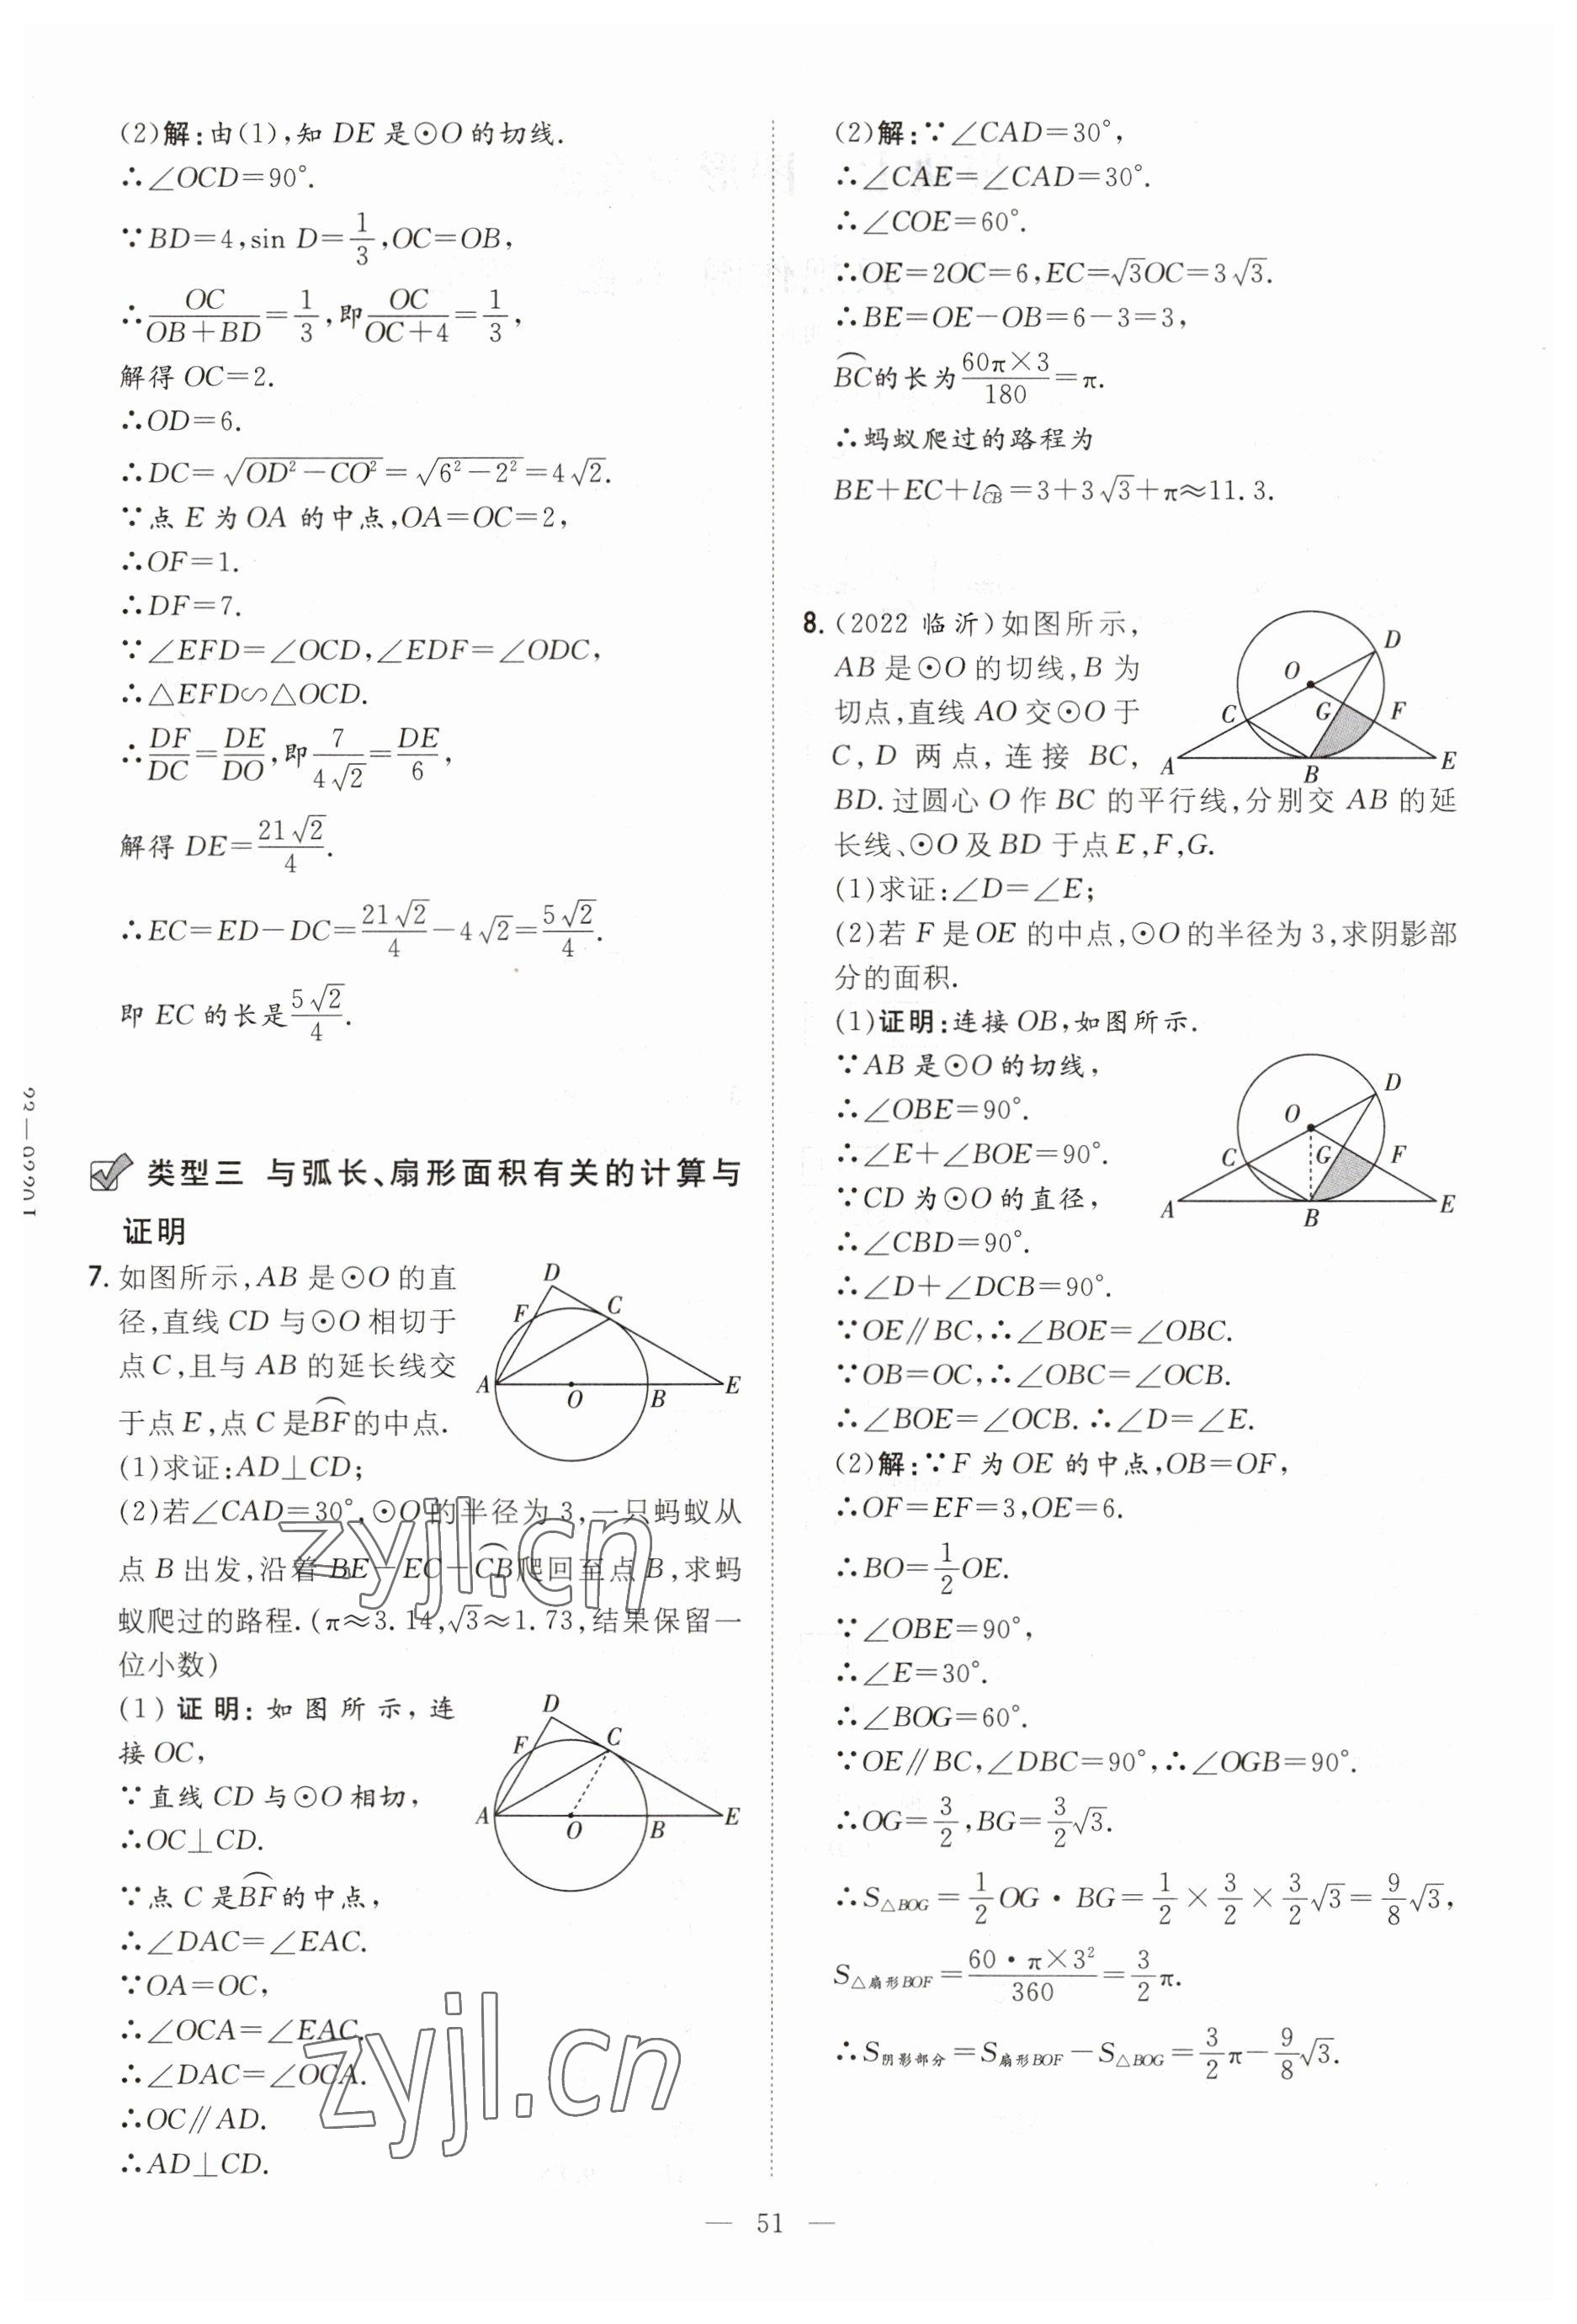 (2)解:由(1),知 DE 是⊙O 的切线.
∴∠OCD=90°.
∵BD=4,sin D=1/3,OC=OB,
∴OC/(OB+BD)=1/3,即OC/(OC+4)=1/3,
解得 OC=2.
∴OD=6.
∴DC=√(OD²-CO²)=√(6²-2²)=4√2.
∵点 E 为 OA 的中点,OA=OC=2,
∴OF=1.
∴DF=7.
∵∠EFD=∠OCD,∠EDF=∠ODC,
∴△EFD∽△OCD.
∴DF/DC=DE/DO,即7/(4√2)=DE/6,
解得 DE=21√2/4.
∴EC=ED-DC=21√2/4-4√2=5√2/4.
即 EC 的长是5√2/4.
类型三 与弧长、扇形面积有关的计算与
证明
7. 如图所示,AB 是⊙O 的直
径,直线 CD 与⊙O 相切于
点 C,且与 AB 的延长线交
于点 E,点 C 是⌒BF的中点.
D
F
C
A
O
B
E
(1)求证:AD⊥CD;
(2)若∠CAD=30°,⊙O 的半径为 3,一只蚂蚁从
点 B 出发,沿着 BE—EC—⌒CB爬回至点 B,求蚂
蚁爬过的路程.(π≈3.14,√3≈1.73,结果保留一
位小数)
(1)证明:如图所示,连
接 OC,
∵直线 CD 与⊙O 相切,
∴OC⊥CD.
∵点 C 是⌒BF的中点,
D
F
C
A
O
B
E
∴∠DAC=∠EAC.
∵OA=OC,
∴∠OCA=∠EAC.
∴∠DAC=∠OCA.
∴OC∥AD.
∴AD⊥CD.
(2)解:∵∠CAD=30°,
∴∠CAE=∠CAD=30°.
∴∠COE=60°.
∴OE=2OC=6,EC=√3OC=3√3.
∴BE=OE-OB=6-3=3,
⌒BC的长为60π×3/180=π.
∴蚂蚁爬过的路程为
BE+EC+l⌒CB=3+3√3+π≈11.3.
8. (2022 临沂)如图所示,
AB 是⊙O 的切线,B 为
切点,直线 AO 交⊙O 于
C,D 两点,连接 BC,
D
O
C
G
F
A
B
E
BD.过圆心 O 作 BC 的平行线,分别交 AB 的延
长线、⊙O 及 BD 于点 E,F,G.
(1)求证:∠D=∠E;
(2)若 F 是 OE 的中点,⊙O 的半径为 3,求阴影部
分的面积.
(1)证明:连接 OB,如图所示.
∵AB 是⊙O 的切线,
∴∠OBE=90°.
∴∠E+∠BOE=90°.
∵CD 为⊙O 的直径,
D
O
C
G
F
A
B
E
∴∠CBD=90°.
∴∠D+∠DCB=90°.
∵OE∥BC,∴∠BOE=∠OBC.
∵OB=OC,∴∠OBC=∠OCB.
∴∠BOE=∠OCB.∴∠D=∠E.
(2)解:∵F 为 OE 的中点,OB=OF,
∴OF=EF=3,OE=6.
∴BO=1/2OE.
∵∠OBE=90°,
∴∠E=30°.
∴∠BOG=60°.
∵OE∥BC,∠DBC=90°,∴∠OGB=90°.
∴OG=3/2,BG=3/2√3.
∴S△BOG=1/2OG·BG=1/2×3/2×3/2√3=9/8√3,
S△扇形BOF=60·π×3²/360=3/2π.
∴S阴影部分=S扇形BOF-S△BOG=3/2π-9/8√3.
— 51 —
zyjl.cn
zyjl.cn